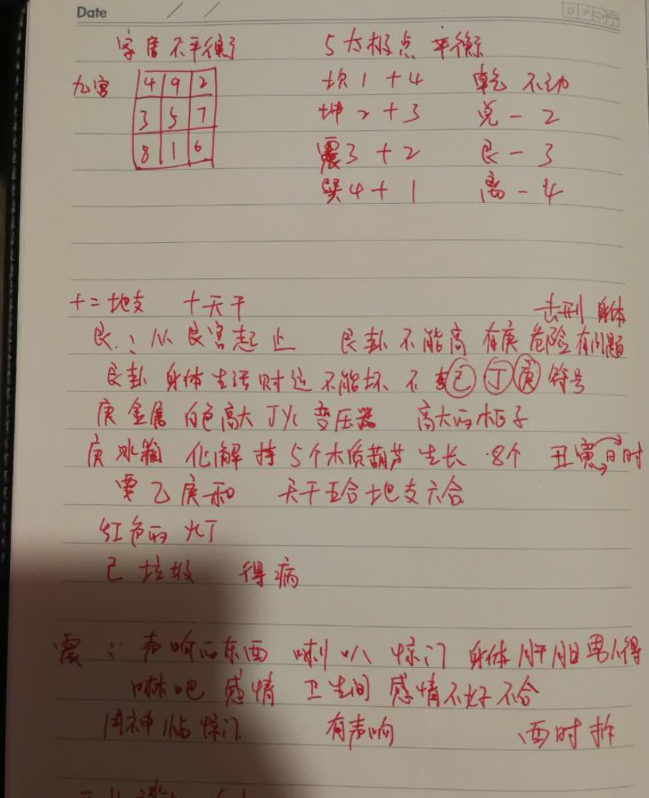 Date
字唐不平衡 5大极点 平衡
九宫 4 9 2 坎1+4 乾 不动
3 5 7 坤2+3 兑-2
8 1 6 震3+2 艮-3
巽4+1 离-4
十二地支 十天干 击刑 身体
艮:从艮宫起 止 艮卦不能高 有庚 危险 有问题
艮卦 身体 生活 财运 不能坏 不 己 丁 庚 符号
庚 金属 白色高大 丁火 变压器 高大的柜子
庚 冰箱 化解 挂5个木质葫芦 生长 8个 丑寅日时
要乙庚和 天干五合 地支六合
红色的 火丁
己 垃圾 得病
震:声响的东西 喇叭 惊门 身体 肝胆 男人得
感情 卫生间 感情不好 不合
用神 临惊门 有声响 酉时拆